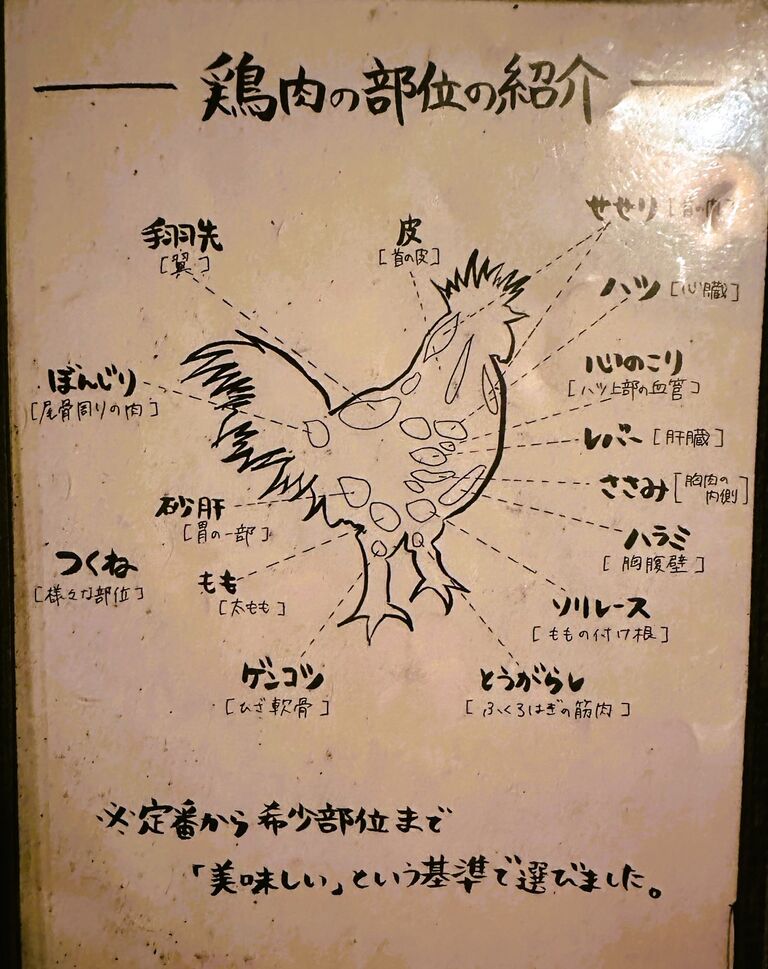 鶏肉の部位の紹介
せせり[首の肉]
手羽先
[翼]
皮
[首の皮]
ハツ[心臓]
心のこり
[ハツ上部の血管]
ぼんじり
[尾骨周りの肉]
レバー[肝臓]
ささみ[胸肉の内側]
砂肝
[胃の一部]
ハラミ
[胸腹壁]
つくね
[様々な部位]
もも
[太もも]
ソリレース
[ももの付け根]
ゲンコツ
[ひざ軟骨]
とうがらし
[ふくらはぎの筋肉]
※定番から希少部位まで
「美味しい」という基準で選びました。